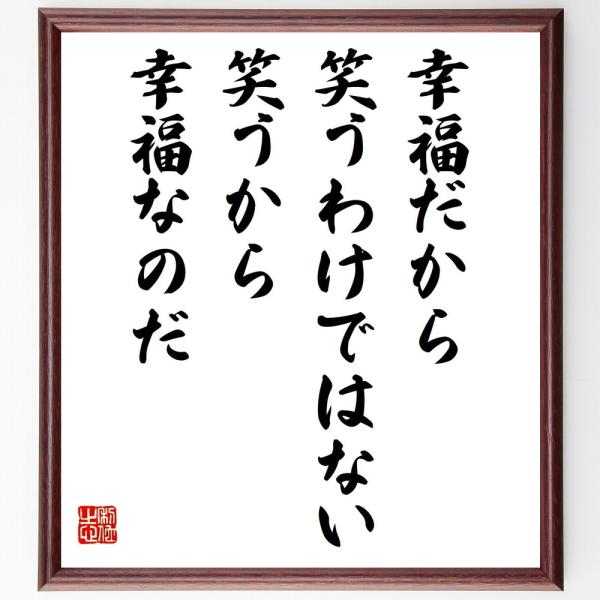 幸福だから
笑うわけではない
笑うから
幸福なのだ